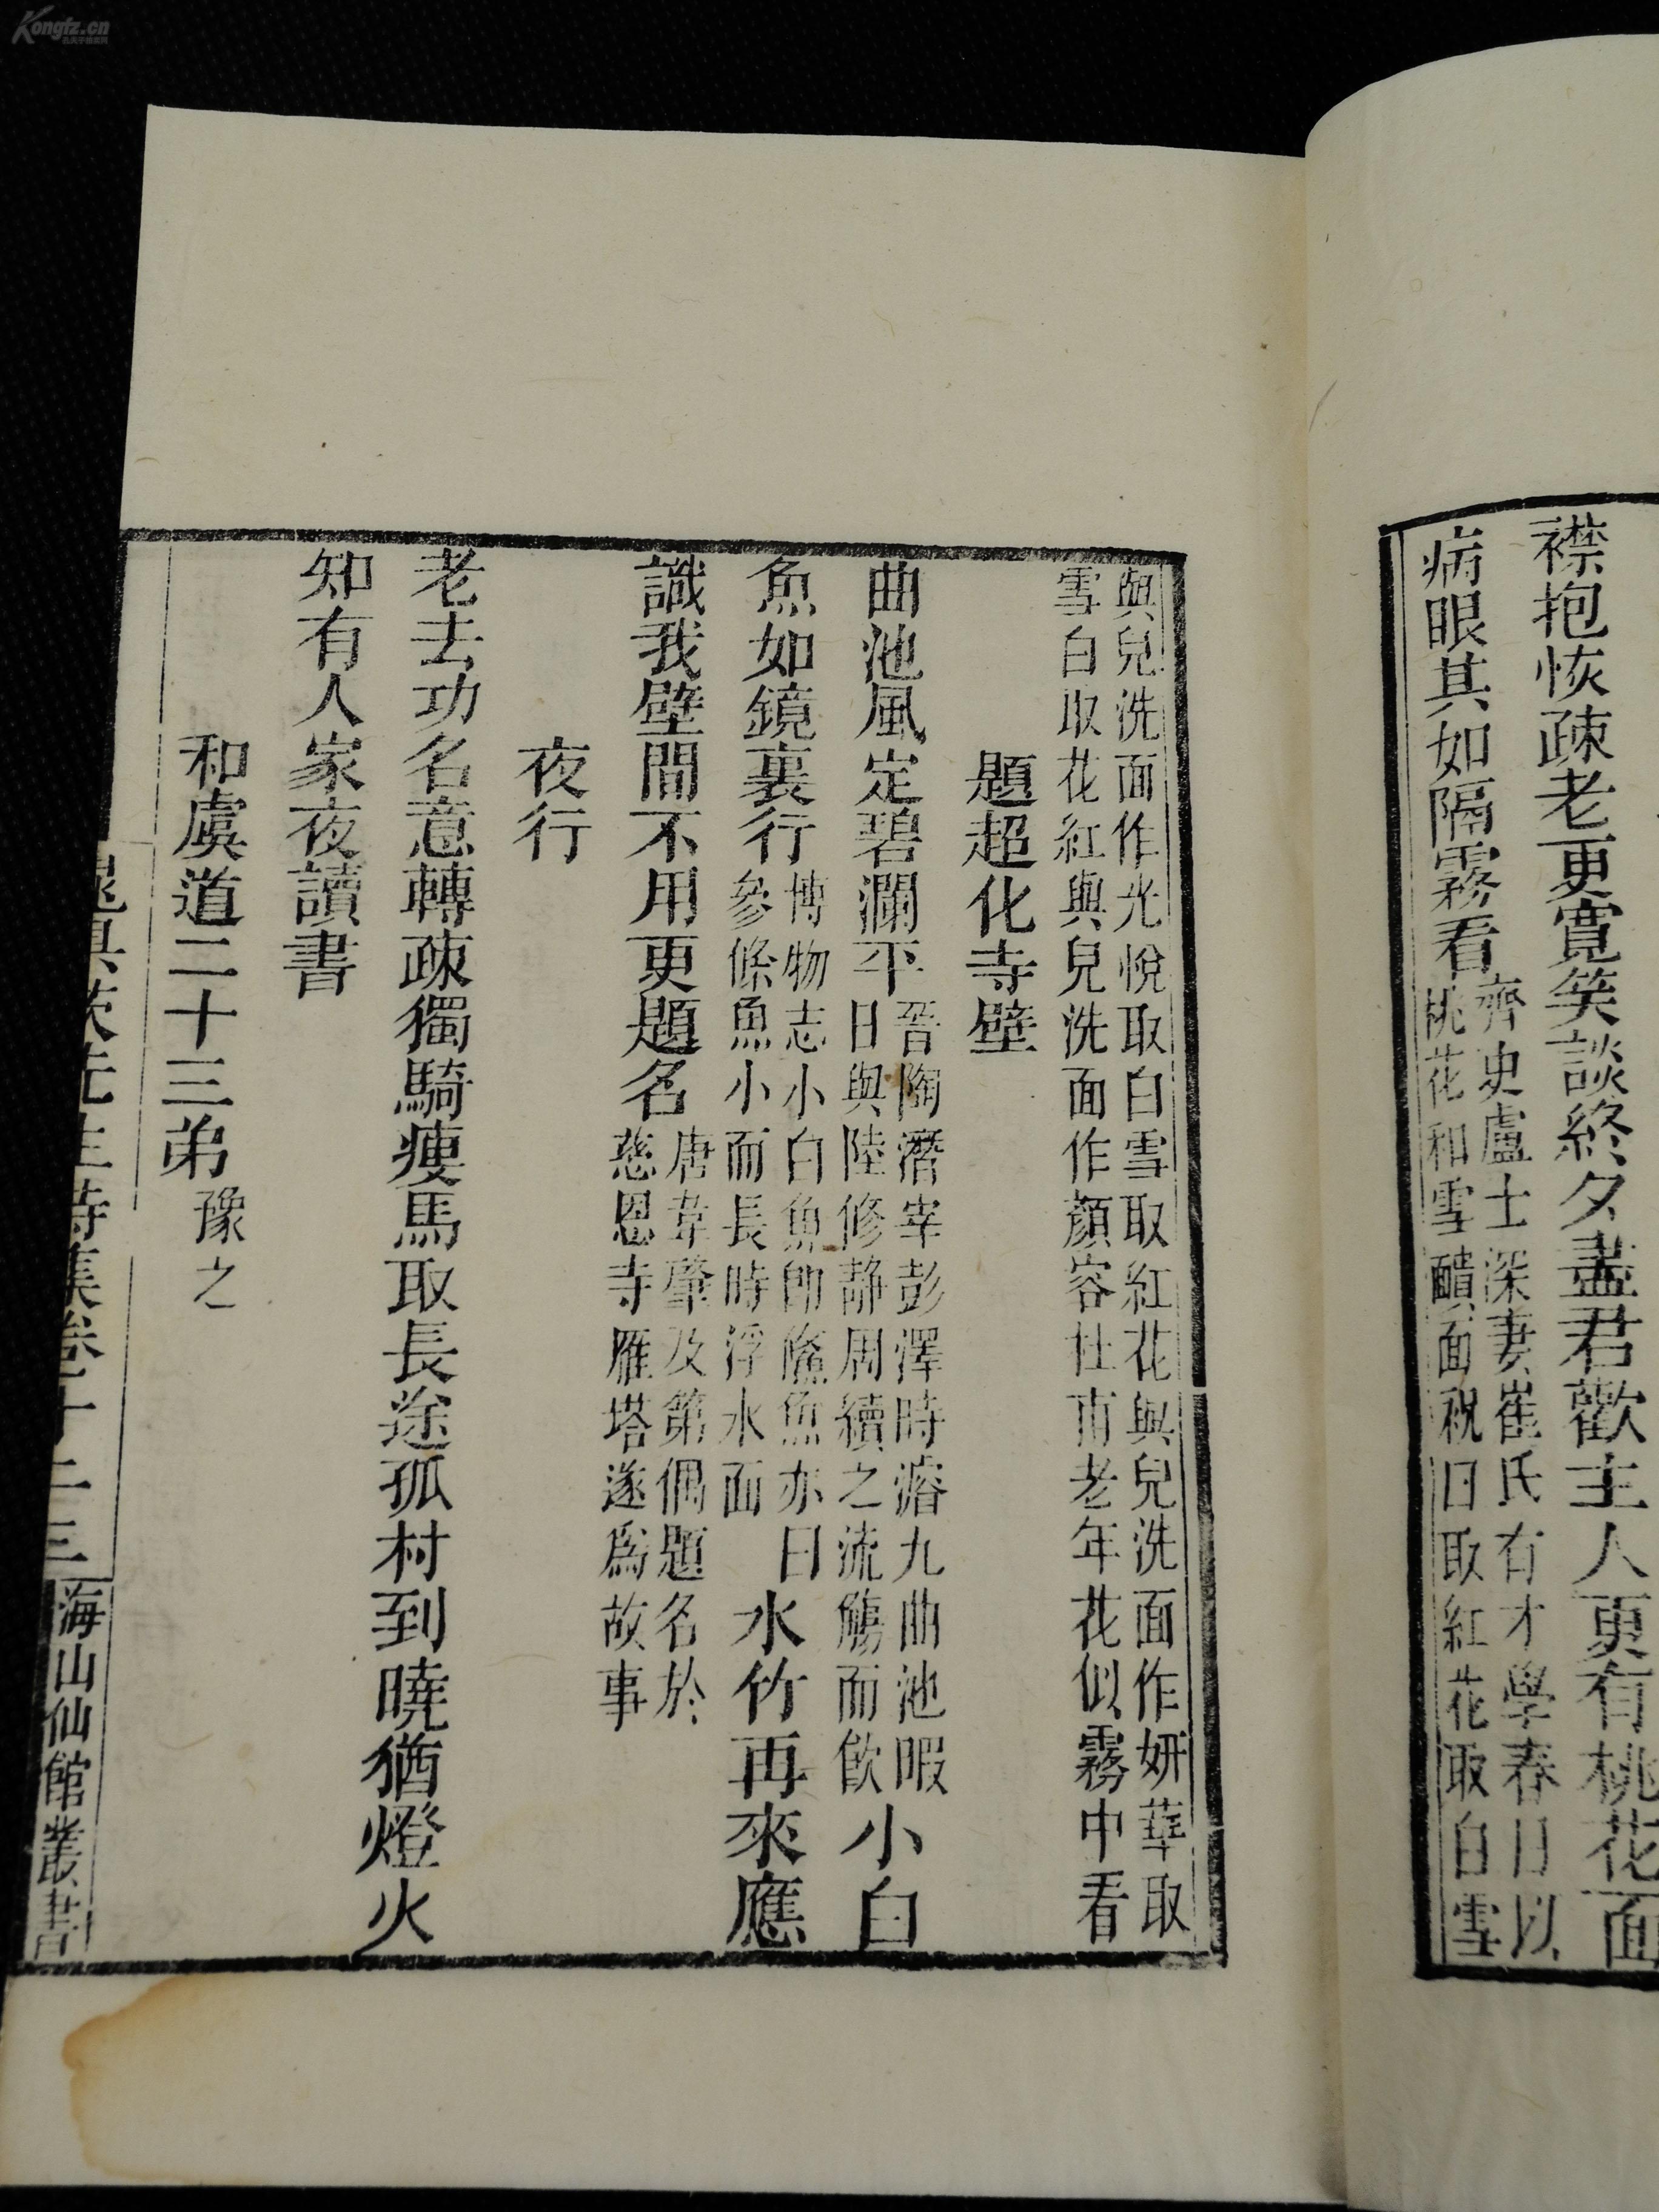 Kongfz.cn
襟抱恢疎老更寬笑談終夕盡君歡主人更有桃花面
病眼其如隔霧看
齊史盧士深妻崔氏有才學春日以
桃花和雪靧面祝曰取紅花取白雪
與兒洗面作光悅取白雪取紅花與兒洗面作妍華取
雪白取花紅與兒洗面作顏容杜甫老年花似霧中看
題超化寺壁
曲池風定碧瀾平
晉陶潛宰彭澤時濬九曲池暇
日與陸修静周續之流觴而飲
小白
魚如鏡裏行
博物志小白魚即鮝魚亦曰
參條魚小而長時浮水面
水竹再來應
識我壁間不用更題名
唐韋肇及第偶題名於
慈恩寺雁塔遂爲故事
夜行
老去功名意轉疎獨騎瘦馬取長途孤村到曉猶燈火
知有人家夜讀書
和虞道二十三弟豫之
晁具茨先生詩集卷十二 三 海山仙館叢書